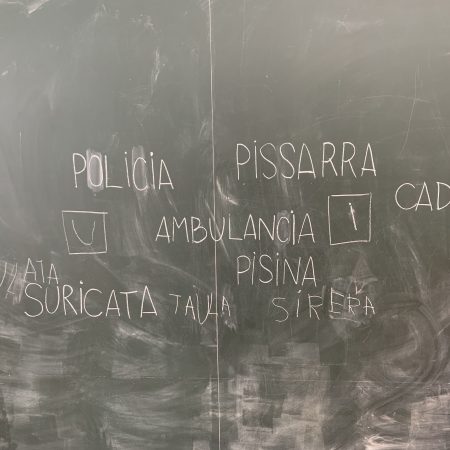 POLICIA PISSARRA
CAD
U AMBULANCIA i
PISINA
SURICATA TAULA SIRERA